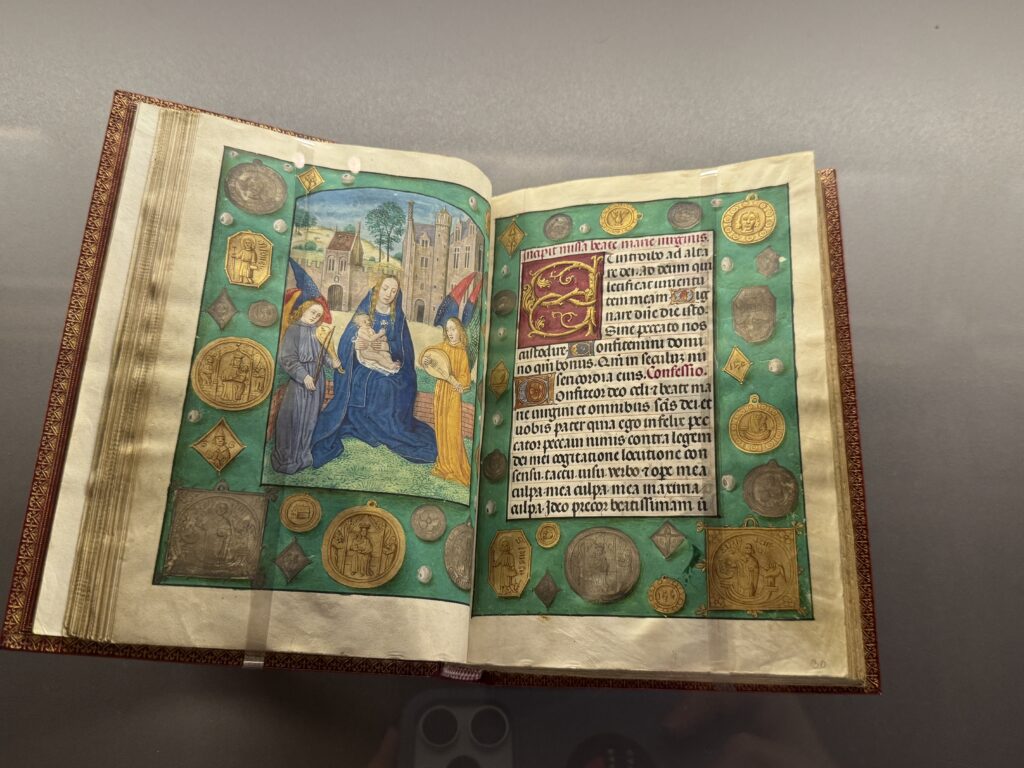 Incipit missa beate marie uirginis.
Et introibo ad alta
re dei: ad deum qui
letificat iuuentu
tem meam. Dig
nare dñe die isto.
Sine peccato nos
custodire Confitemini domi
no qm̃ bonus. Qm̃ in seculũ mi
sericordia eius. Confessio.
Confiteor deo celi ⁊ beate ma
rie uirgini et omnibus scĩs dei et
uobis pater quia ego infelix pec
cator peccaui nimis contra legem
dei mei cogitatione locutione con
sensu, tactu, uisu, uerbo ⁊ oꝑe mea
culpa. mea culpa. mea maxima
culpa. Ideo precor beatissimam ui